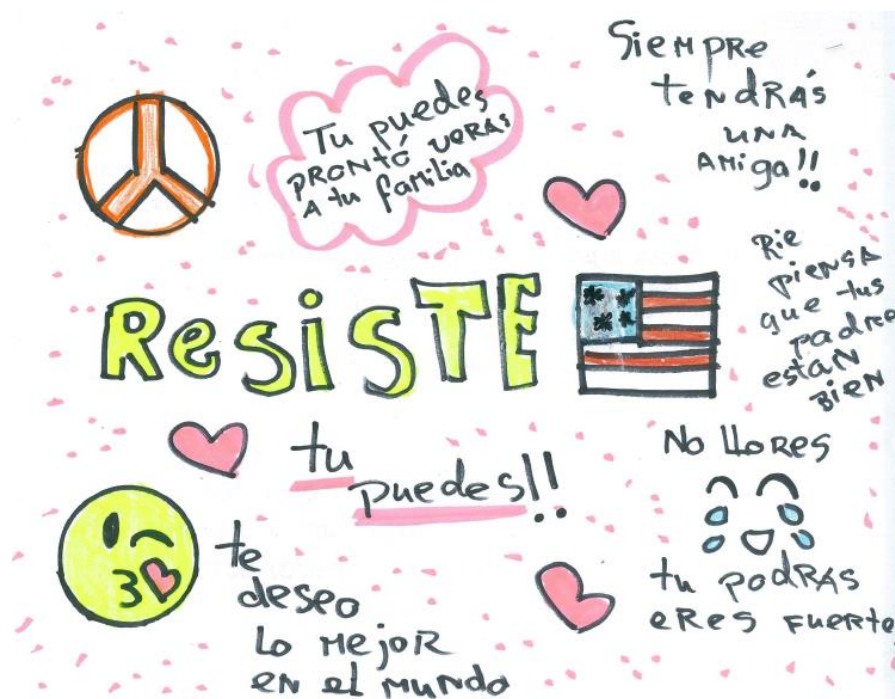 Tu puedes
PRONTÓ VERAS
A tu familia
SIEMPRE
TENDRÁS
UNA
AMiga!!
ResisTE
Rie
PIENSA
que tus
padre
estAN
BIEN
tu
puedes!!
No lloRes
tu podRAS
eRes FueRte
te
deseo
Lo MejoR
EN el MUNDO